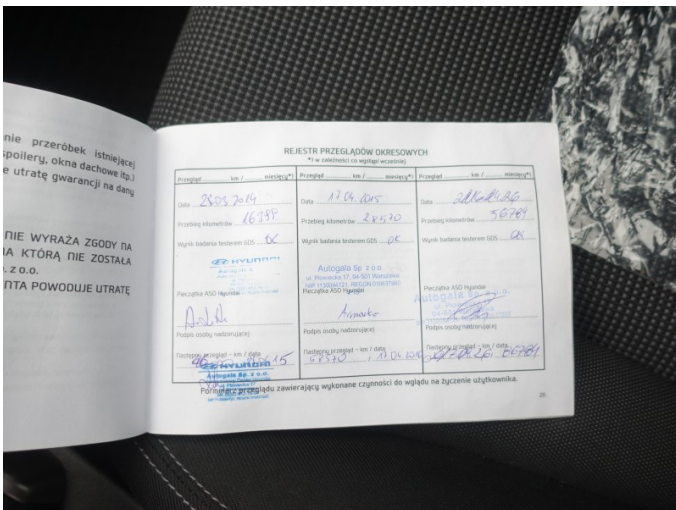 nie przeróbek istniejącej
spoilery, okna dachowe itp.)
e utratę gwarancji na dany
NIE WYRAŻA ZGODY NA
NA KTÓRĄ NIE ZOSTAŁA
. z o.o.
ENTA POWODUJE UTRATĘ
REJESTR PRZEGLĄDÓW OKRESOWYCH
*) w zależności co wystąpi wcześniej
Przegląd km / miesięcy*) Przegląd km / miesięcy*) Przegląd km / miesięcy*)
Data 2014 Data 17.04.2015 Data
Przebieg kilometrów Przebieg kilometrów 28570 Przebieg kilometrów 56789
Wynik badania testerem GDS Wynik badania testerem GDS OK Wynik badania testerem GDS OK
HYUNDAI
Autogala Sp. z o.o.
ul. Płowiecka 17, 04-501 Warszawa
Pieczątka ASO Hyundai Pieczątka ASO Hyundai Pieczątka ASO Hyundai
Autogala Sp. z o.o.
Podpis osoby nadzorującej Podpis osoby nadzorującej Podpis osoby nadzorującej
Następny przegląd – km / data Następny przegląd – km / data Następny przegląd – km / data
HYUNDAI
Autogala Sp. z o.o.
Formularz przeglądu zawierający wykonane czynności do wglądu na życzenie użytkownika.